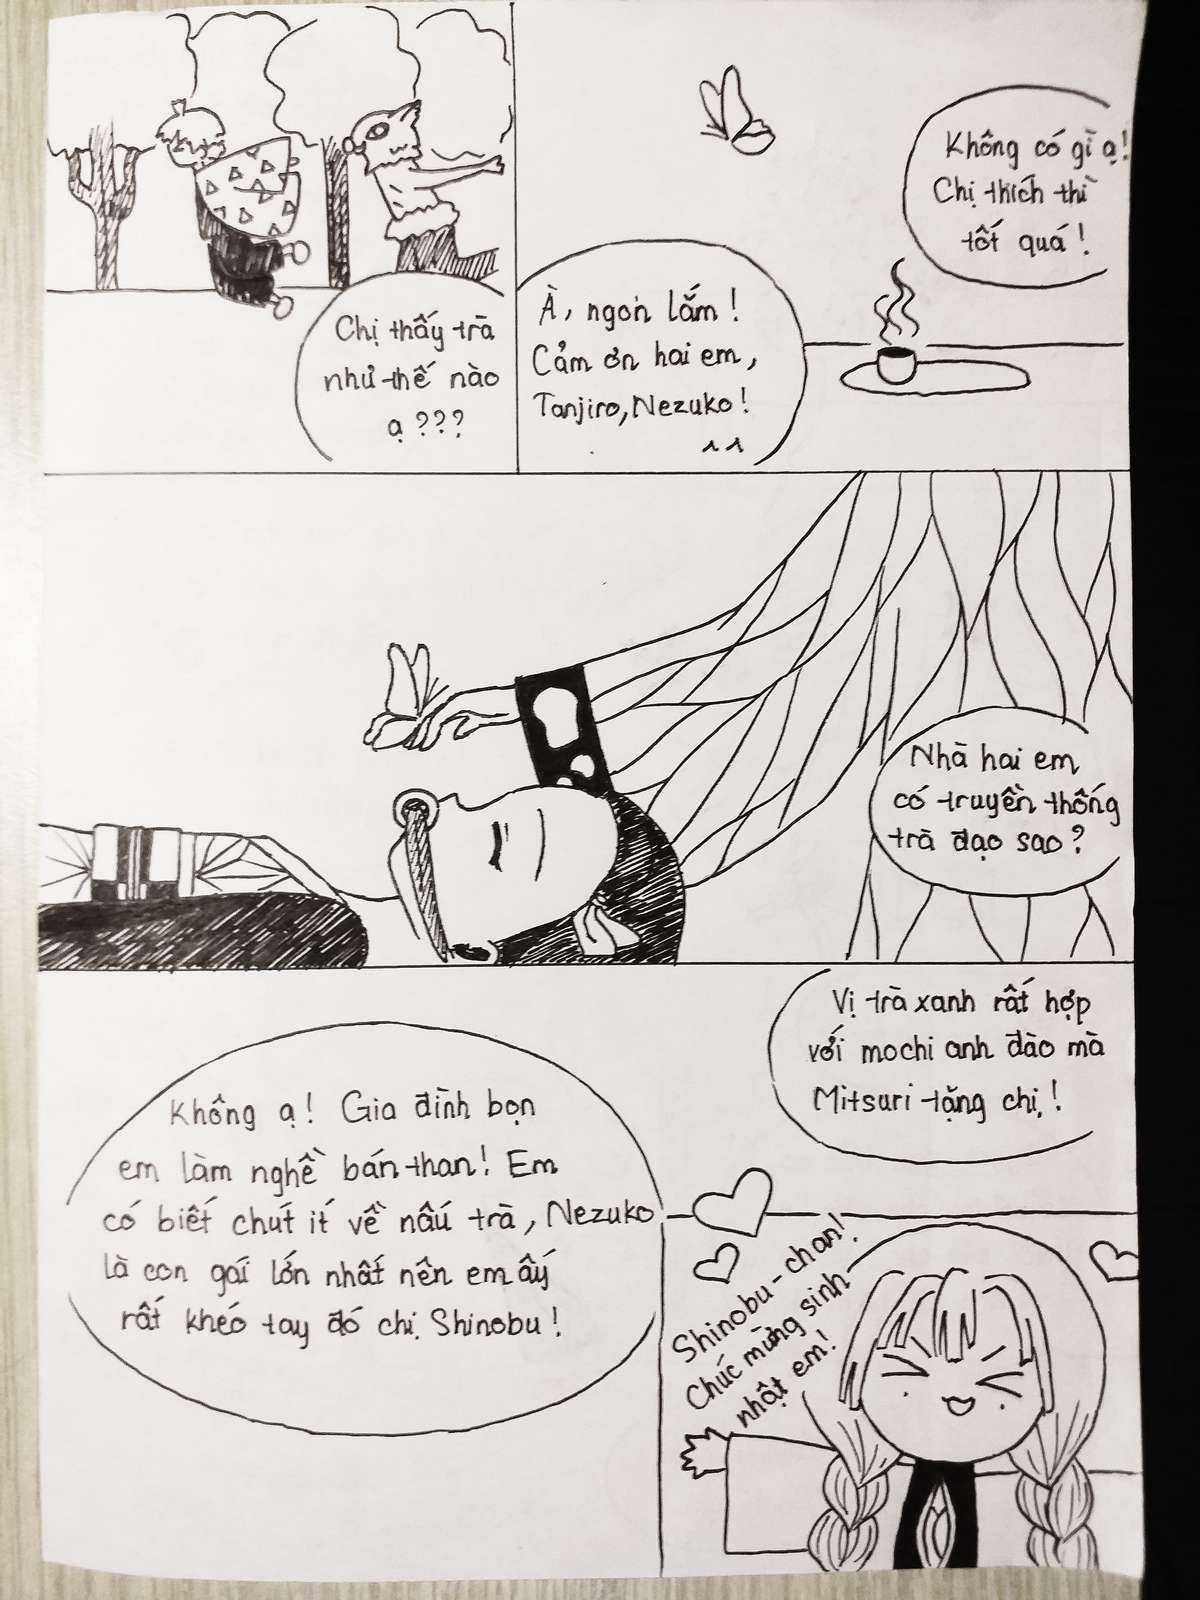 Chị thấy trà
như thế nào
ạ???
À, ngon lắm!
Cảm ơn hai em,
Tanjiro, Nezuko!
^^
Không có gì ạ!
Chị thích thì
tốt quá!
Nhà hai em
có truyền thống
trà đạo sao?
Không ạ! Gia đình bọn
em làm nghề bán than! Em
có biết chút ít về nấu trà, Nezuko
là con gái lớn nhất nên em ấy
rất khéo tay đó chị Shinobu!
Vị trà xanh rất hợp
với mochi anh đào mà
Mitsuri tặng chị!
Shinobu-chan!
Chúc mừng sinh
nhật em!